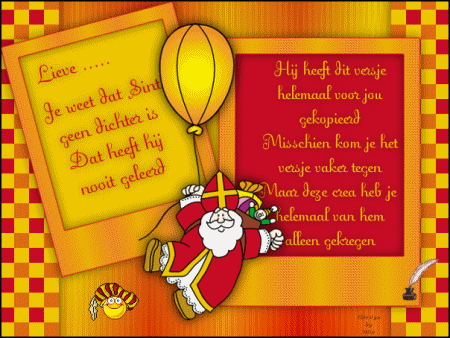 Lieve .....
Je weet dat Sint
geen dichter is
Dat heeft hij
nooit geleerd
Hij heeft dit versje
helemaal voor jou
gekopieerd
Misschien kom je het
versje vaker tegen
Maar deze crea heb je
helemaal van hem
alleen gekregen